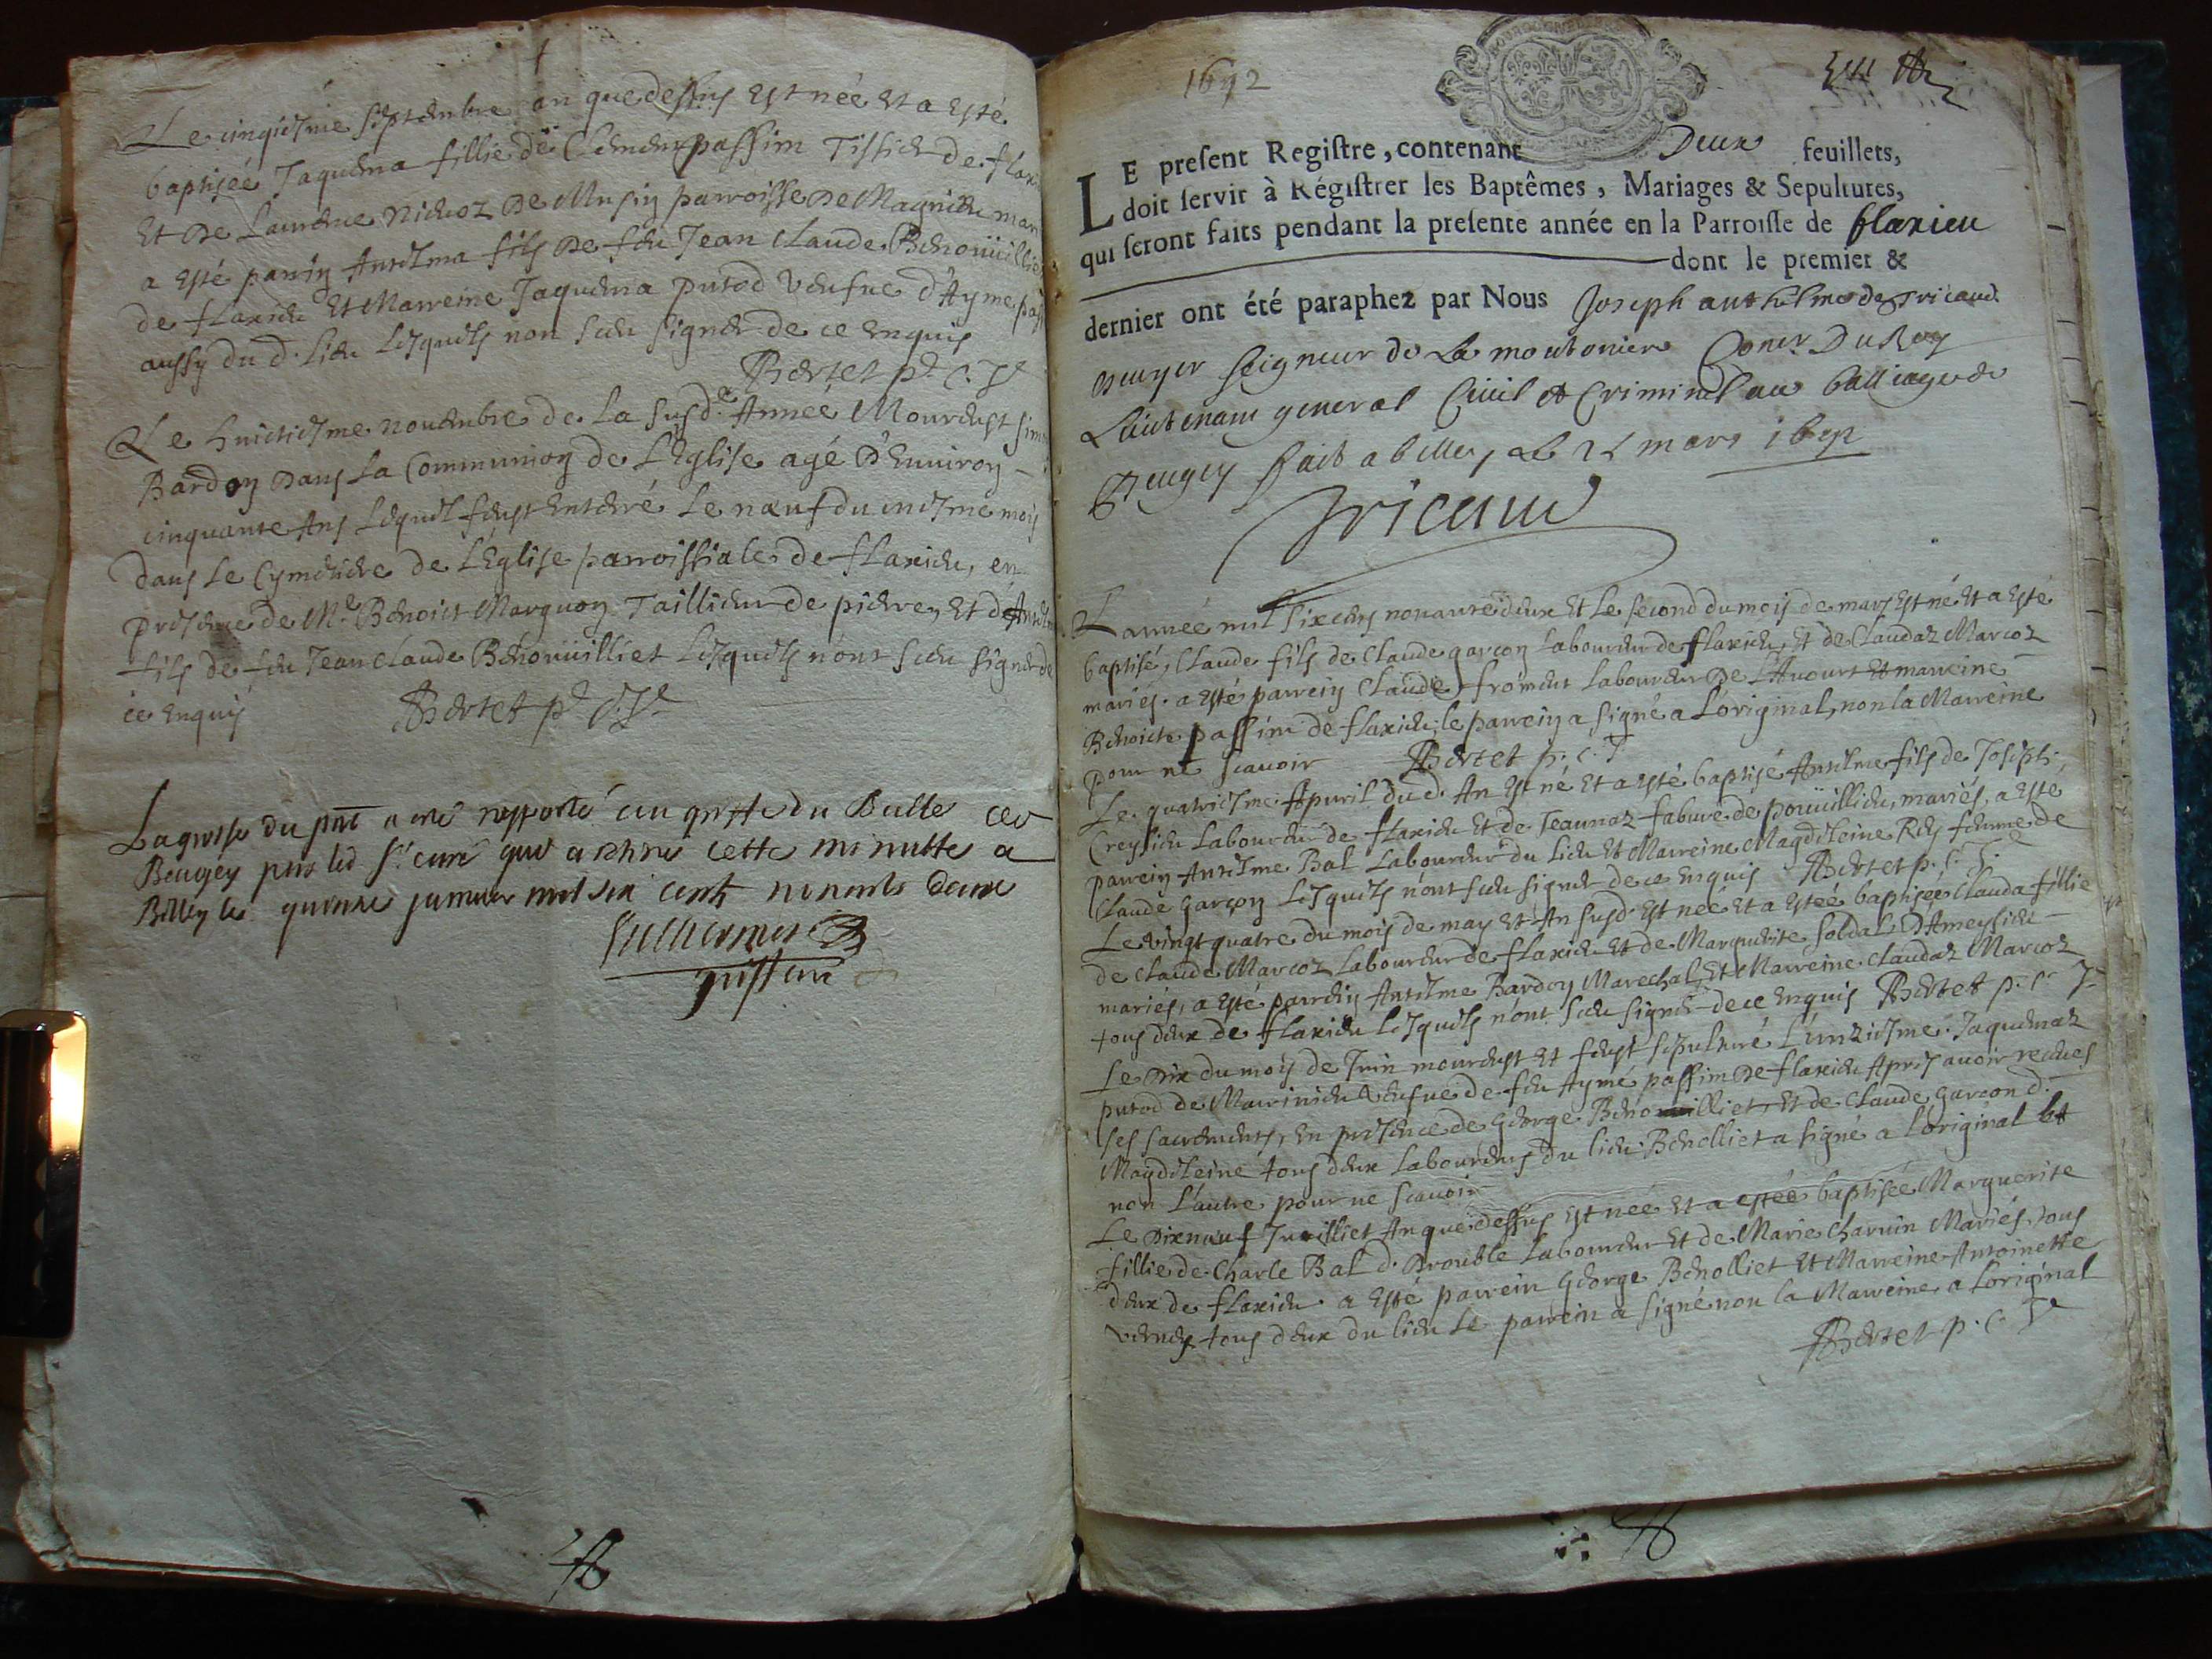 Le cinqiesme septembre an que dessus Est née Et a Esté
baptiseé Jaquema fillie de Clement passim Tissier de flaxi
Et De Laurence Nicoz De Musin parroisse De Magnieu mari
a Esté parrin Antelma fils De feu Jean Claude Benouillie
de flaxieu Et Marreine Jaquema putod veufue d'Ayme pass
aussy du d. lieu lesquels non sceu signer de ce enquis
Bertet p. c. J
Le huictiesme nouembre de la susd. Annee Mourust sim
Bardon Dans La Communion de L'Eglise agé D'Enuiron
cinquante Ans Lequel feust Enterré Le neuf du mesme mois
dans Le Cymetiere de L'Eglise parroissiale de flaxieu, en
presence de Me Benoict Marquon Taillieur de pierre, Et de
fils de feu Jean Claude Benouilliet Lesquels n'ont sceu signer de
ce Enquis Bertet p. c. J
La grosse du pnt a esté rapporté au greffe du Balle
Beugey par led Sr curé cette minutte a
Belley le quinze januier mil six cent nonente deux
1692
LE present Registre, contenant Deux feuillets,
doit servir à Régistrer les Baptêmes, Mariages & Sepultures,
qui seront faits pendant la presente année en la Parroisse de flaxieu
dont le premier &
dernier ont été paraphez par Nous Joseph anthelme de Tricaud
seigneur de La moutoniere Coner Du Roy
Lieutenant general Ciuil et Criminel au balliage de
Beugey fait a belley le mars 1692
Tricaud
L'année mil six cens nonante deux Et Le second du mois de mars Est né Et a Esté
baptisé, Claude fils de Claude garçon Laboureur de flaxieu, Et de Claudaz Marcoz
mariés. a Esté parrein Claude froment Laboureur De L'Auourt Et marreine
Benoicte passim de flaxieu, le parrein a signé a L'original, non la Marreine
pour ne scauoir Bertet p. c. J
Le quatriesme Apuril du d. An Est né Et a Esté baptisé Antelme fils de Joseph
Creysieu Laboureur de flaxieu Et de Jeannaz fabure de poüillieu, mariés, a Esté
parrein Antelme Bal Laboureur du Lieu Et Marreine Magdeleine Rey femme de
Claude garçon Lesquels n'ont sceu signer de ce enquis Bertet p. c. J
Le vingt quatre du mois de may Et An susd. Est neé Et a Esteé baptiseé Clauda fillie
de Claude Marcoz Laboureur de flaxieu Et de Marguerite Soldat D'Ameysieu
mariés, a Esté parrein Antelme Bardon Marechal, Et Marreine Claudaz Marcoz
tous deux de flaxieu Lesquels n'ont sceu signer de ce Enquis Bertet p. c. J
Le Dix du mois de Juin mourust Et feust sepulturé L'unziesme Jaquemaz
putod de Veufue de feu Aymé passim De flaxieu Apres auoir receues
ses sacrements, En presence de George Benouilliet, Et de Claude garçon d.
Magdeleine tous deux Laboureurs du lieu Benolliet a signé a L'original Et
non L'autre pour ne scauoir
Le Dixneuf Juilliet An que dessus Est neé Et a esteé baptiseé Marguerite
fillie de Charle Bal d. Drouble Laboureur Et de Marie Charuin Mariés, tous
deux de flaxieu. a Esté parrein George Benolliet Et Marreine Antoinette
tous deux du lieu Le parrein a signé non la Marreine a L'original
Bertet p. c. J